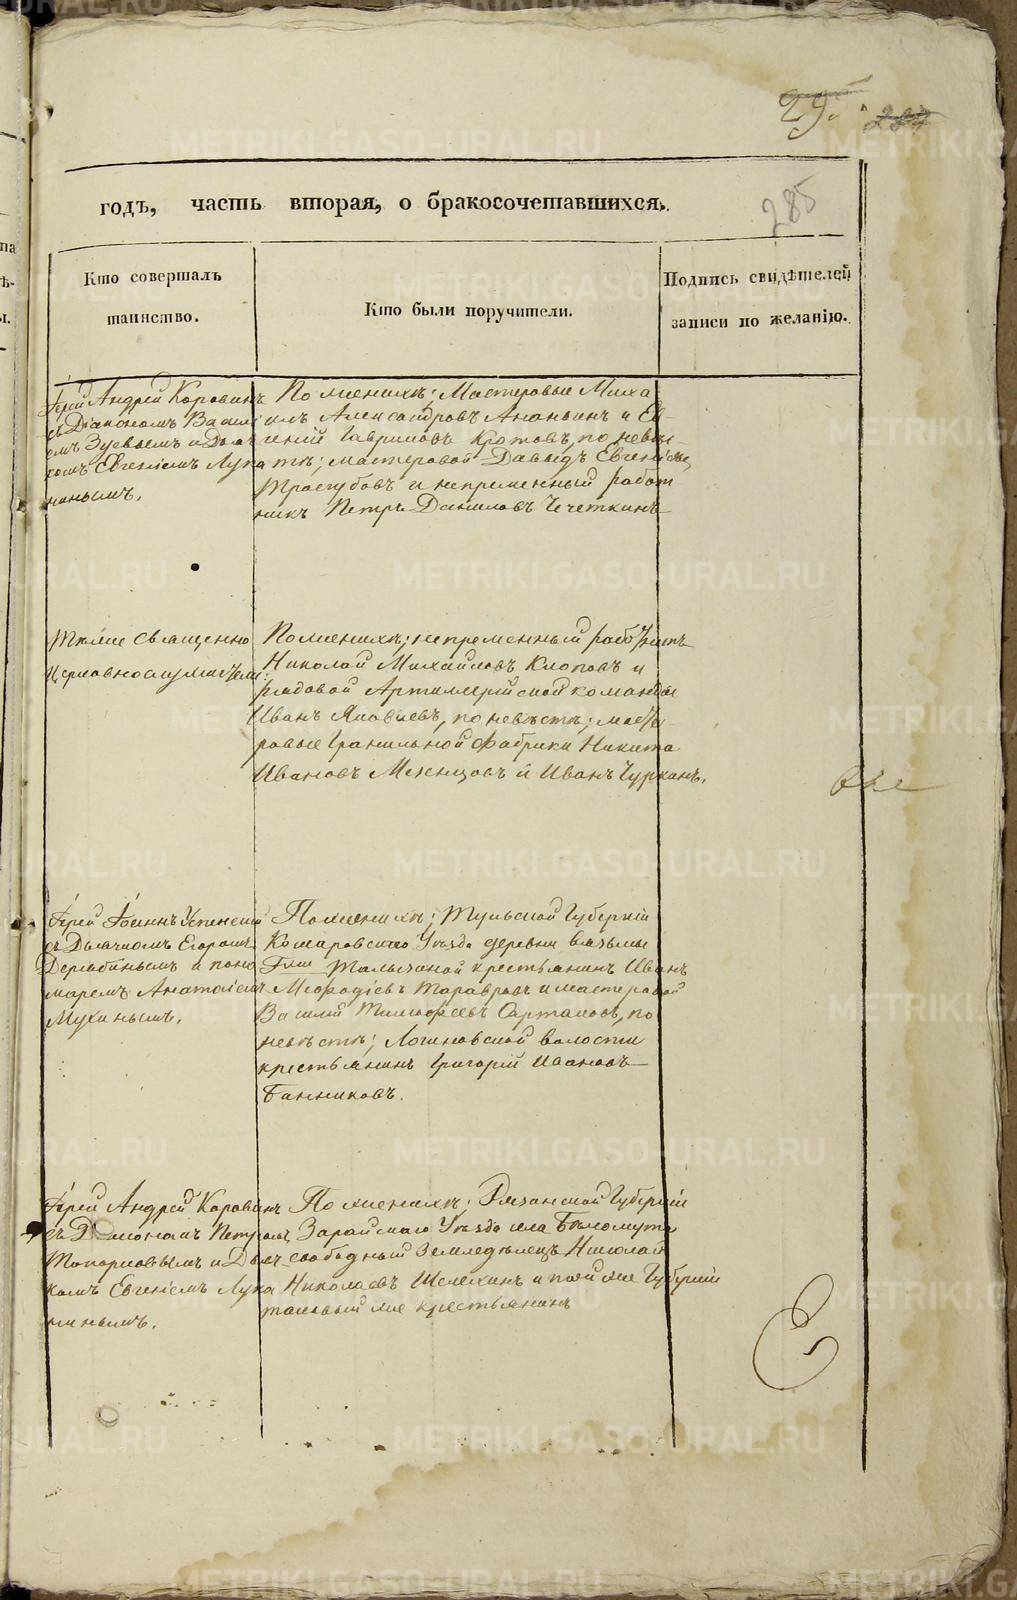 29.
287
285
годъ, часть вторая, о бракосочетавшихся.
Кто совершалъ
таинство.
Кто были поручители.
Подпись свидѣтелей
записи по желанію.
Іерей Андрей Коровинъ
съ Діакономъ Васили
емъ Зуевымъ и Дьяч
комъ Евгеніемъ Лука
нинымъ.
По женихѣ; Мастеровые Миха
илъ Александровъ Ананьинъ и Ев-
геній Гавриловъ Кротовъ, по невѣс-
тѣ; мастеровой Давыдъ Евгеніевъ
и непременный работ
никъ Петръ Даниловъ Чечеткинъ
Тѣже Священно
Церковнослужители.
По женихѣ; непременный работникъ
Николай Михайловъ Клоповъ и
рядовой Артиллерійской команды
Иванъ Яковлевъ, по невѣстѣ; масте-
ровые Гранильной Фабрики Никита
Ивановъ Мезенцовъ и Иванъ Чурканъ.
Іерей Іоаннъ Успенскій
съ Дьячкомъ Егоромъ
Дерябинымъ и поно
маремъ Анатоліемъ
Мухинымъ.
По женихѣ; Тульской Губерніи
Комаровскаго Уѣзда деревни Вязьмы
крестьянинъ Иванъ
Меѳодіевъ и мастеровой
Василій Тимоѳеевъ по
невѣстѣ; Логиновской волости
крестьянинъ Григорій Ивановъ
Банниковъ.
Іерей Андрей Коровинъ
съ Діакономъ Петромъ
Топорковымъ и Дьяч
комъ Евгеніемъ Лука
нинымъ.
По женихѣ; Рязанской Губерніи
Зарайскаго Уѣзда села Бѣломута
свободный Земледѣлецъ Николай
Николаевъ Шелехинъ и той же Губерніи
таковый же крестьянинъ
METRIKI.GASO-URAL.RU